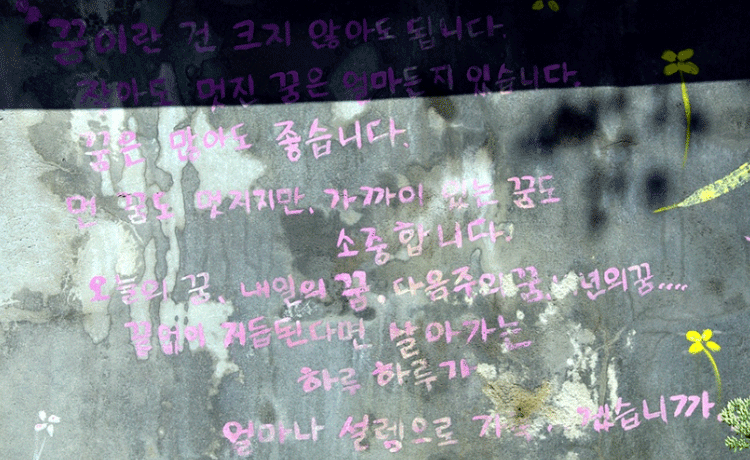 꿈이란 건 크지 않아도 됩니다.
작아도 멋진 꿈은 얼마든지 있습니다.
꿈은 많아도 좋습니다.
먼 꿈도 멋지지만, 가까이 있는 꿈도
소중합니다.
오늘의 꿈, 내일의 꿈, 다음주의 꿈, 년의꿈....
끝없이 거듭된다면 날아가는
하루 하루가
얼마나 설렘으로 겠습니까.